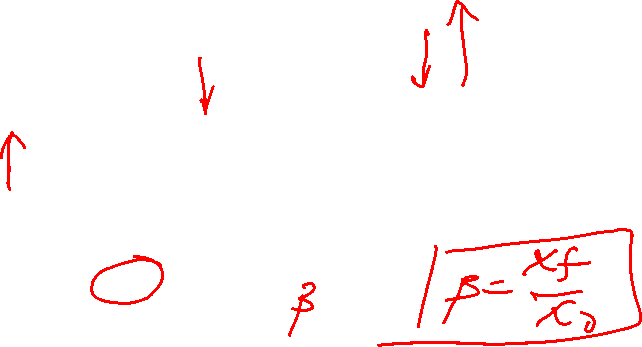 β
β = xf / x₀